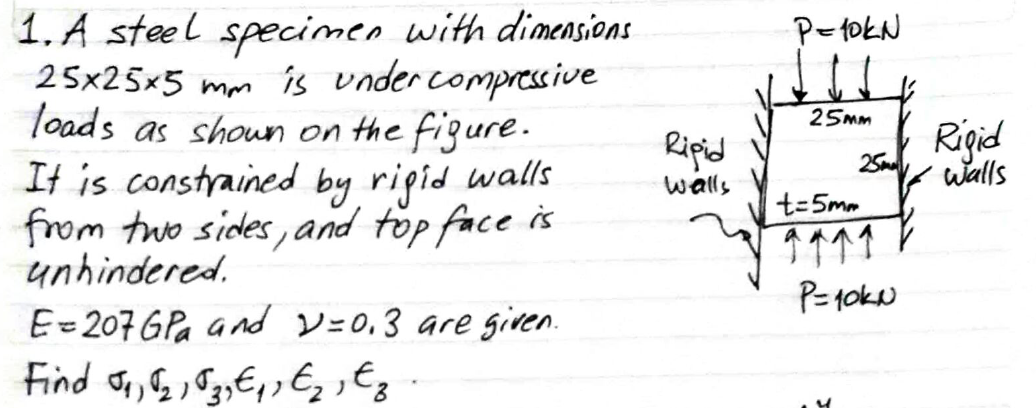 1. A steel specimen with dimensions
25x25x5 mm is under compressive
loads as shown on the figure.
It is constrained by rigid walls
from two sides, and top face is
unhindered.
E=207 GPa and ν=0.3 are given.
Find σ1, σ2, σ3, ϵ1, ϵ2, ϵ3.
P=10kN
25mm
25mm
Rigid
walls
Rigid
walls
t=5mm
P=10kN